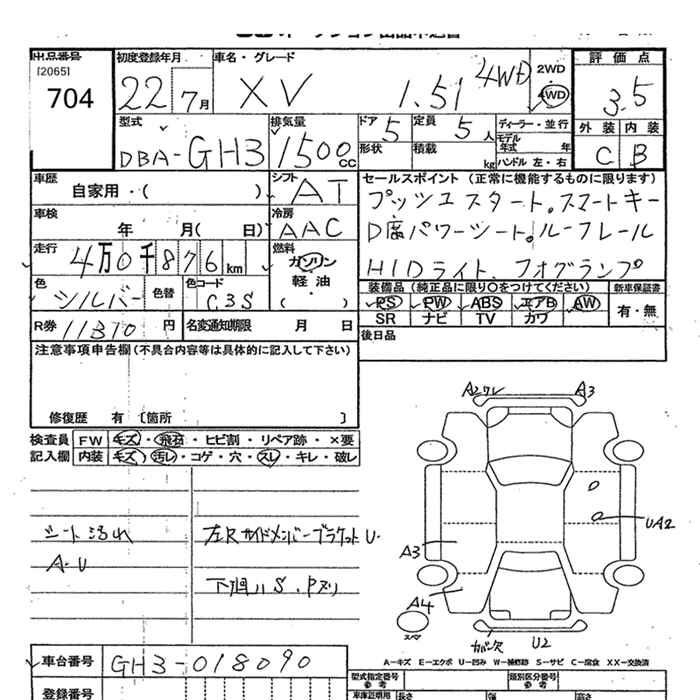 出品番号 初度登録年月 車名・グレード 2WD 評価点
[2065]
704 22 7月 XV 1.5i 4WD 4WD 3.5
型式 排気量 ドア 5 定員 5人 ディーラー・並行 外装 内装
DBA-GH3 1500cc 形状 積載 kg モデル年式 年 C B
ハンドル 左・右
車歴 自家用・( ) シフト AT セールスポイント (正常に機能するものに限ります)
プッシュスタート。スマートキー
車検 年 月( 日) 冷房 AAC D席パワーシート。ルーフレール
走行 4万0千876km 燃料 ガソリン HIDライト、フォグランプ
軽油
( ・ )
色 シルバー 色替 色コード C3S 装備品 (純正品に限り○をつけてください) 新車保証書
PS PW ABS エアB AW 有・無
SR ナビ TV カワ
R券 11310円 名変通知期限 月 日 後日品
注意事項申告欄 (不具合内容等は具体的に記入して下さい)
修復歴 有 〔箇所 〕
検査員 FW キズ・飛石・ヒビ割・リペア跡・×要
記入欄 内装 キズ・汚レ・コゲ・穴・スレ・キレ・破レ
A2ワレ A3
UA2
A3
A4
スペ
カバー欠 U2
シート汚れ 左Rサイドメンバーブラケット U・
A・U
下廻りS.Pヌリ
A-キズ E-エクボ U-凹み W-補修跡 S-サビ C-腐食 XX-交換済
車台番号 GH3-018090
型式指定番号 参考 類別区分番号 参考
登録番号 車庫証明用 長さ 幅 高さ